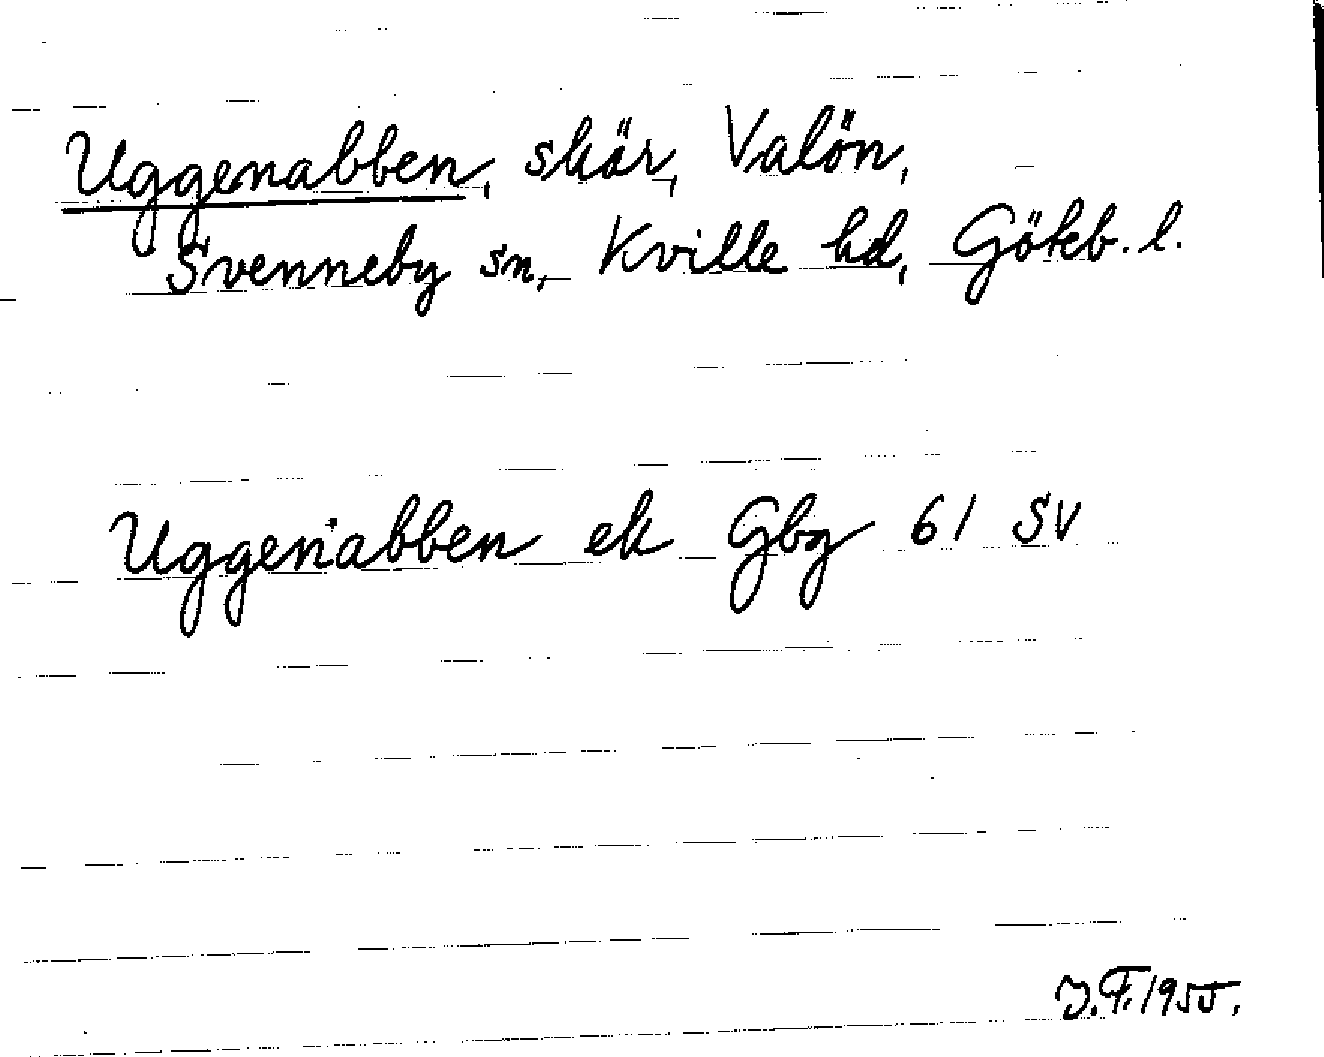 Uggenabben, skär, Valön,
Svenneby sn, Kville hd, Göteb. l.
Uggenabben ek Gbg 61 SV
J.F. 1955.